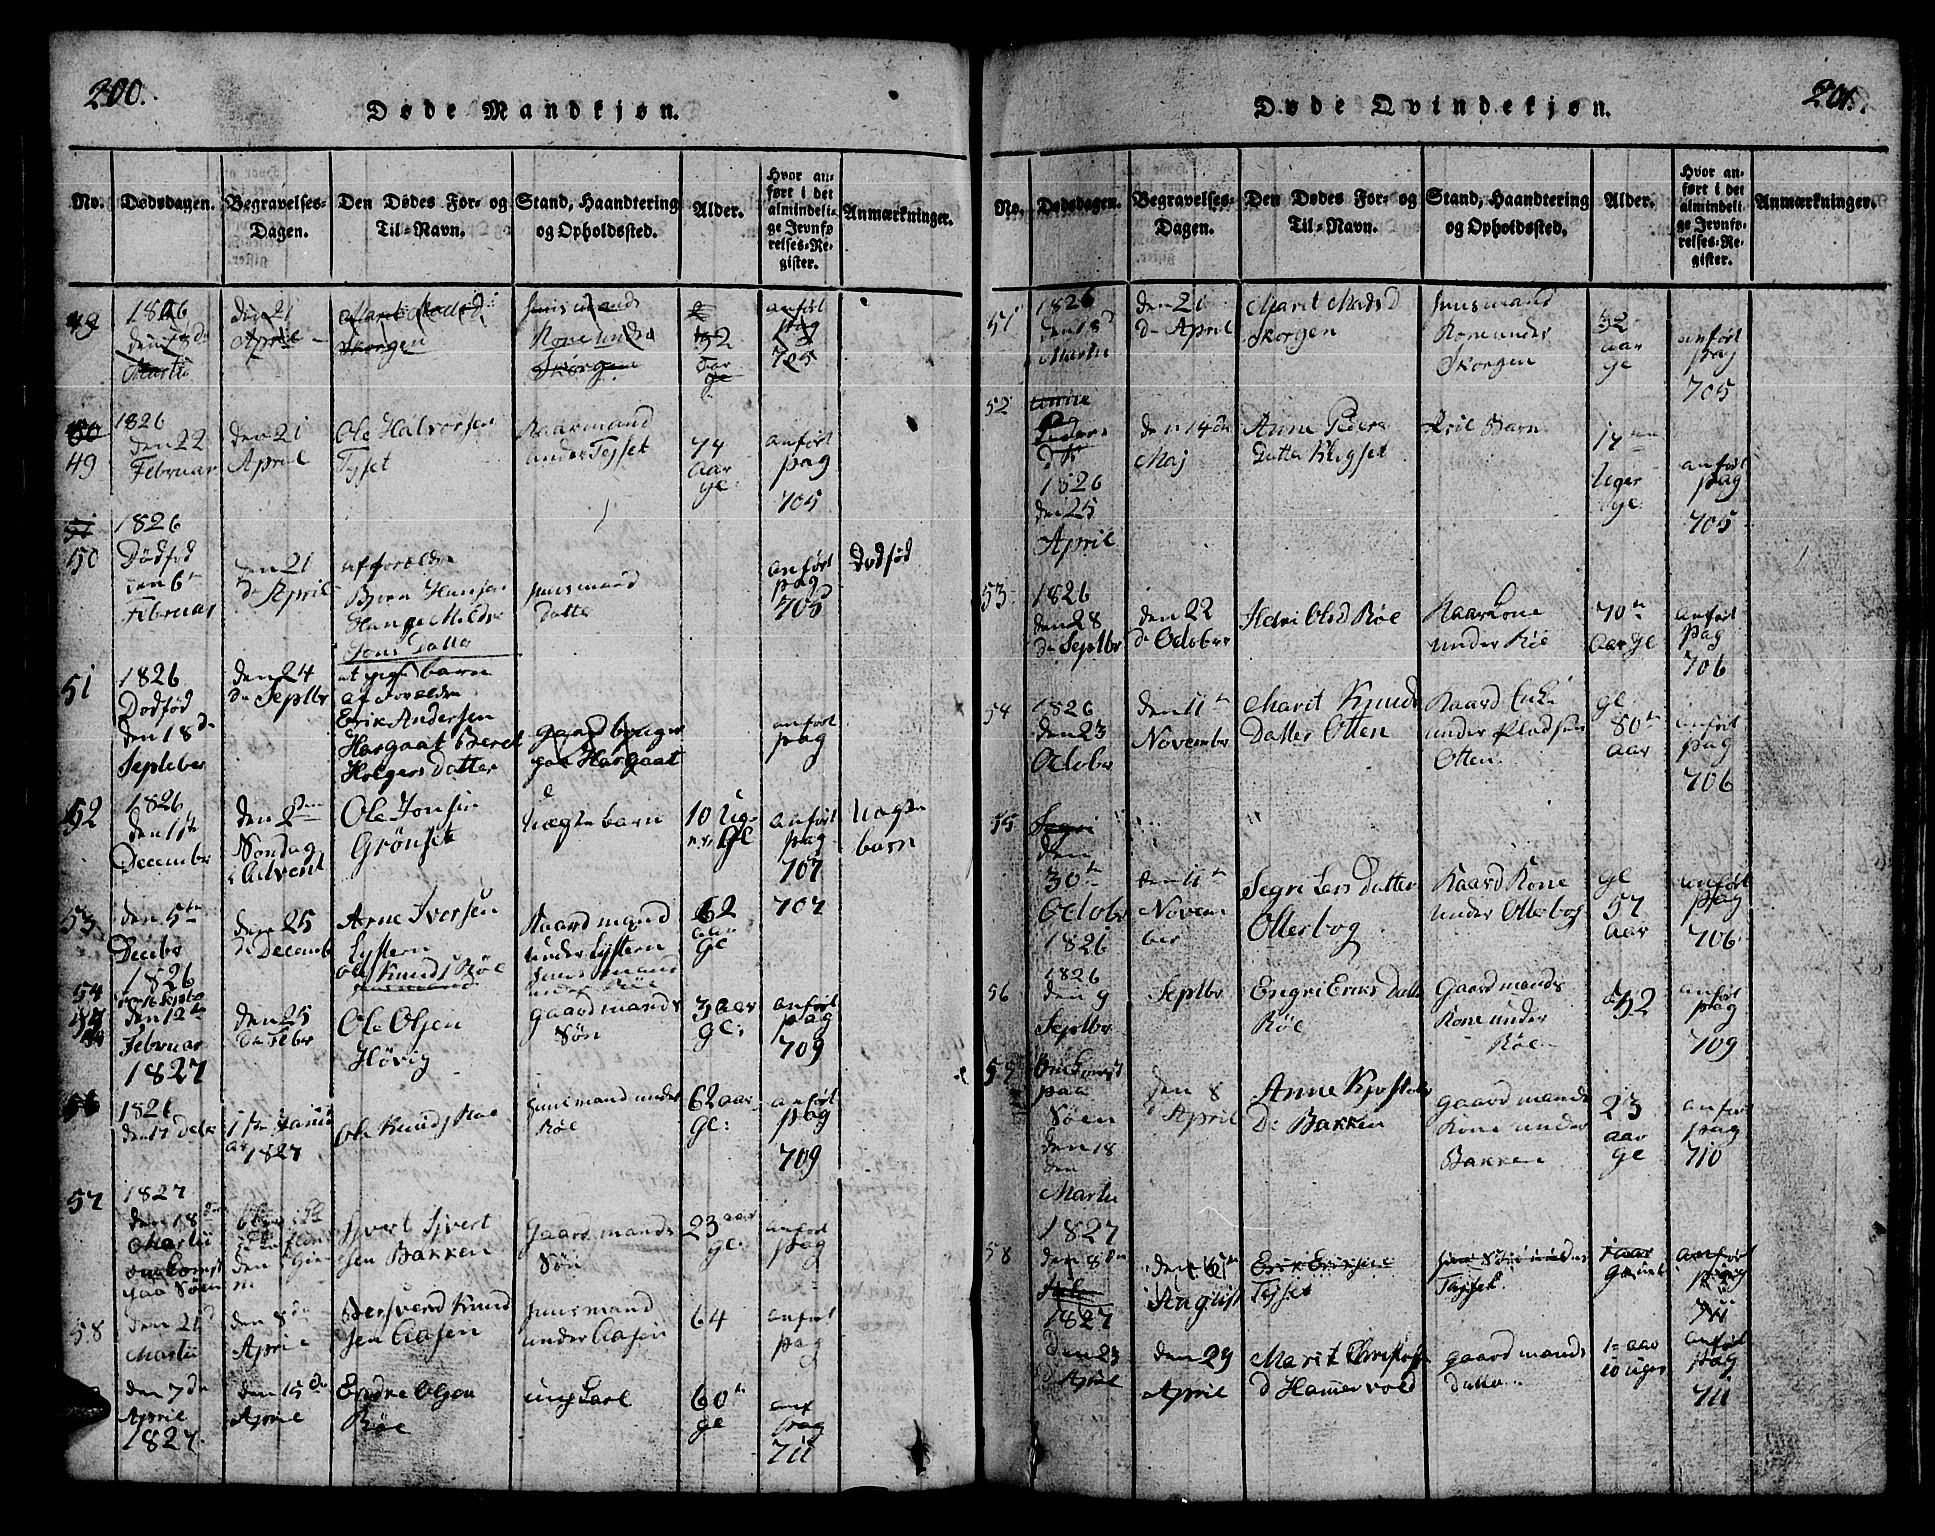 200.
Døde Mandkjøn.
No.
Dødsdagen.
Begravelses-
Dagen.
Den Dødes For- og
Til-Navn.
Stand, Haandtering
og Opholdssted.
Alder.
Hvor an-
ført i det
almindeli-
ge Jevnfø-
relses-Re-
gister.
Anmærkninger.
49
1826
den 18de
Martii
den 21
April
Marit Madsd
Skorgen
Huusmands
Kone under
Skorgen
52
aar
gl
anført
pag
705
50
49
1826
den 22
Februar
den 21
April
Ole Halvorsen
Tejset
Kaarmand
under Tejset
74
aar
gl.
anført
pag
705
51
50
1826
Dødfød
den 6te
Februar
den 21
de April
af forældre
Bjørn Hansen
Jons Datter
Huusmand
anført
pag
705
Dødfød
51
1826
Dødfød
den 18de
Septeber
den 24
de Septbr
et barn
af Forældre
Erik Andersen
Hargaat Beret
Holgers Datter
gaardbruger
paa Hargaat
anført
pag
52
1826
den 1ste
December
den 2den
Søndag
i Advent
Ole Jonsen
Grønset
Uægte barn
10 Ug-
er Gl
anført
pag
707
Uægte
barn
53
den 5te
Decebr
1826
den 25
de Decemb
Arne Iversen
Lystern
Kaardmand
under Lystern
62
aar
Gl
707
54
Ole Knuds Røe
Huusmand
under Røe
den 12te
Februar
1827
den 25
de Febr
Ole Olsen
Høvig
gaardmands
Søn
3 aar
gl:
anført
pag
709
56
1826
den 17
1827
Ole Knuds Røe
Huusmand under
Røe
62 aar
gl:
anført
pag
709
57
1827
den 18de
Martii
omkomst
paa Søen
Sjvert Sjvert
sen Bakken
Gaardmands
Søn
23 aar
gl:
anført
pag
58
den 21
Martii
den 8de
April
Bersvend Knud
sen Aasen
Huusmand
under Aasen
64
anført
pag
den 7de
April
1827.
den 15de
April
Endre Olsen
Røe
ung Karl
60te
gl
anf
pag
711
201.
Døde Qvindekjøn.
No.
Dødsdagen.
Begravelses-
Dagen.
Den Dødes For- og
Til-Navn.
Stand, Haandtering
og Opholdssted.
Alder.
Hvor an-
ført i det
almindeli-
ge Jevnfø-
relses-Re-
gister.
Anmærkninger.
51
1826
den 18d
Martii
den 21
de April
Marit Madsd
Skorgen
Huusmand
Kone under
Skorgen
52
aar
gl
anført
pag
705
52
Anne
Peders
dtr
1826
den 25
April
den 14de
Maj
Anne Peders
Datter Klegset
Pige Barn
17
Uger
gl
anført
pag
705
53
1826
den 28
de Septbr
den 22
de October
Sidri Olsd Røe
Kaarkone
under Røe
70te
aar gl
anført
pag
706
54
1826
den 23
Octobr
den 11te
November
Marit Knuds
Datter Otten
Kaard Enke
under Pladsen
Otten
gl
80te
aar
anført
pag
706
55
Segri
den
30te
Octobr
1826
den 11te
Novem
ber
Segri Lars Datter
Otterbog
Kaard Kone
under Otterbog
gl
57
aar
anført
pag
706
56
1826
den 9
Septbr
Septbr
Engri Eriks Datter
Røe
Gaardmands
Kone under
Røe
52
anført
pag
709
57
Omkomst
paa
Søen
den 18
den
Martii
1827
den 8
de April
Anne Kristofers
D: Bakken
gaardmands
Kone under
Bakken
23
aar
gl
anført
pag
710
58
den 8de
Julii
1827
August
Erik Eriksen
Tejset
Søn under
Tejset
1 aar
gammel
anført
pag
711
den 23
April
den 29
April
Marit Christofer
d Hammervold
gaardmands
datter
1 aar
10 uger
anført
pag
711